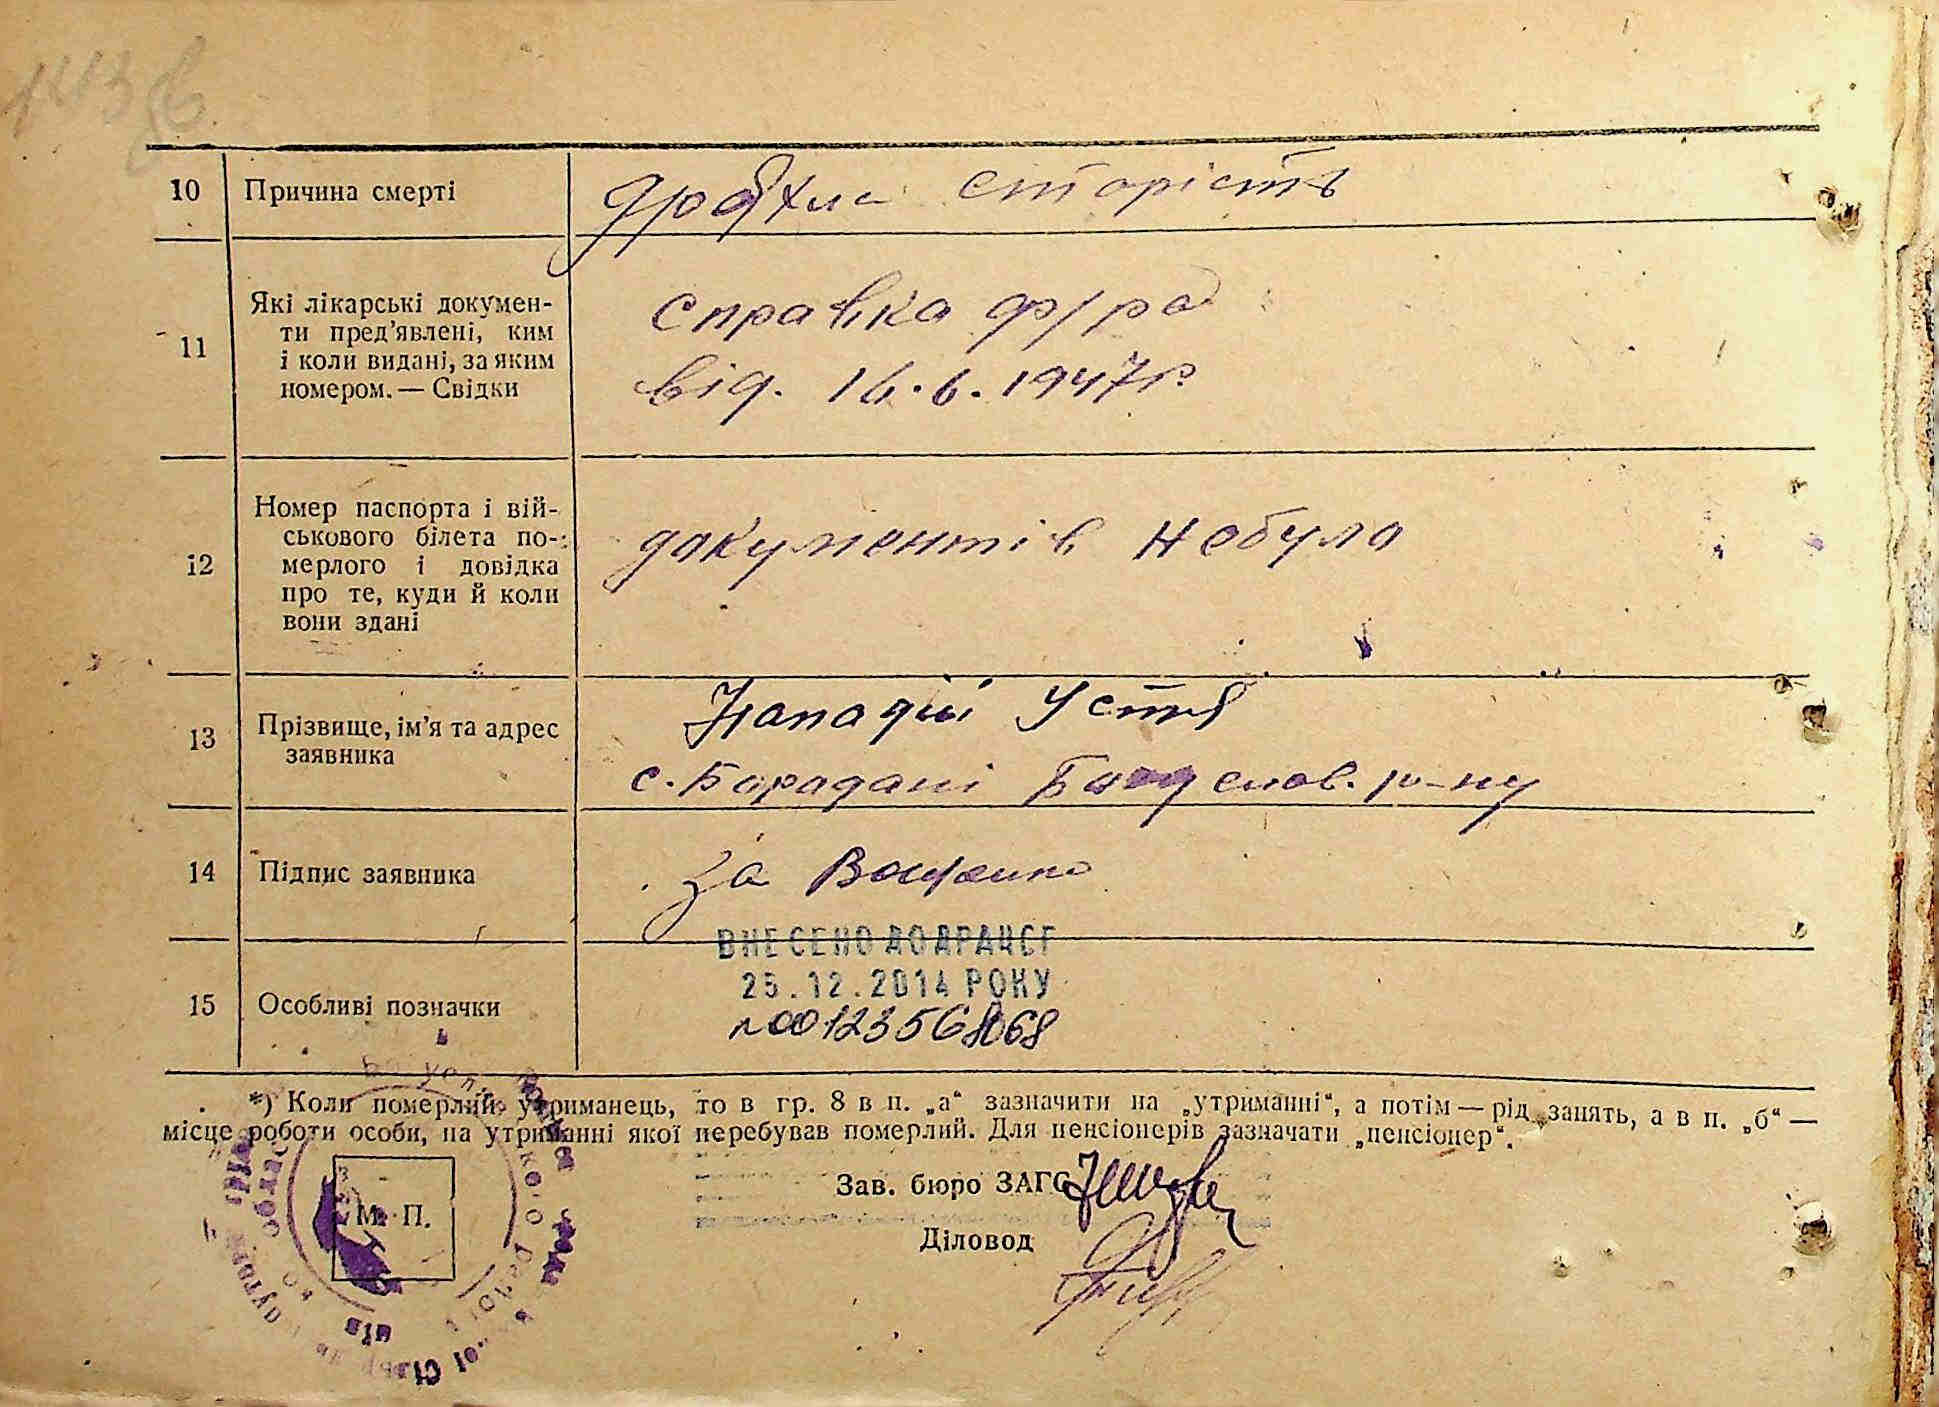 10 Причина смерті
дряхла старість
11 Які лікарські докумен-
ти пред’явлені, ким
і коли видані, за яким
номером. — Свідки
справка ф/ра
від. 16.6.1947р
12 Номер паспорта і вій-
ськового білета по-
мерлого і довідка
про те, куди й коли
вони здані
документів небуло
13 Прізвище, ім’я та адрес
заявника
с. Бородані р-ну
14 Підпис заявника
за
15 Особливі позначки
ВНЕСЕНО ДО ДРАЦСГ
25.12.2014 РОКУ
*) Коли померлий утриманець, то в гр. 8 в п. „а“ зазначити на „утриманні“, а потім — рід занять, а в п. „б“ —
місце роботи особи, на утриманні якої перебував померлий. Для пенсіонерів зазначати „пенсіонер“.
Зав. бюро ЗАГС
М. П.
Діловод